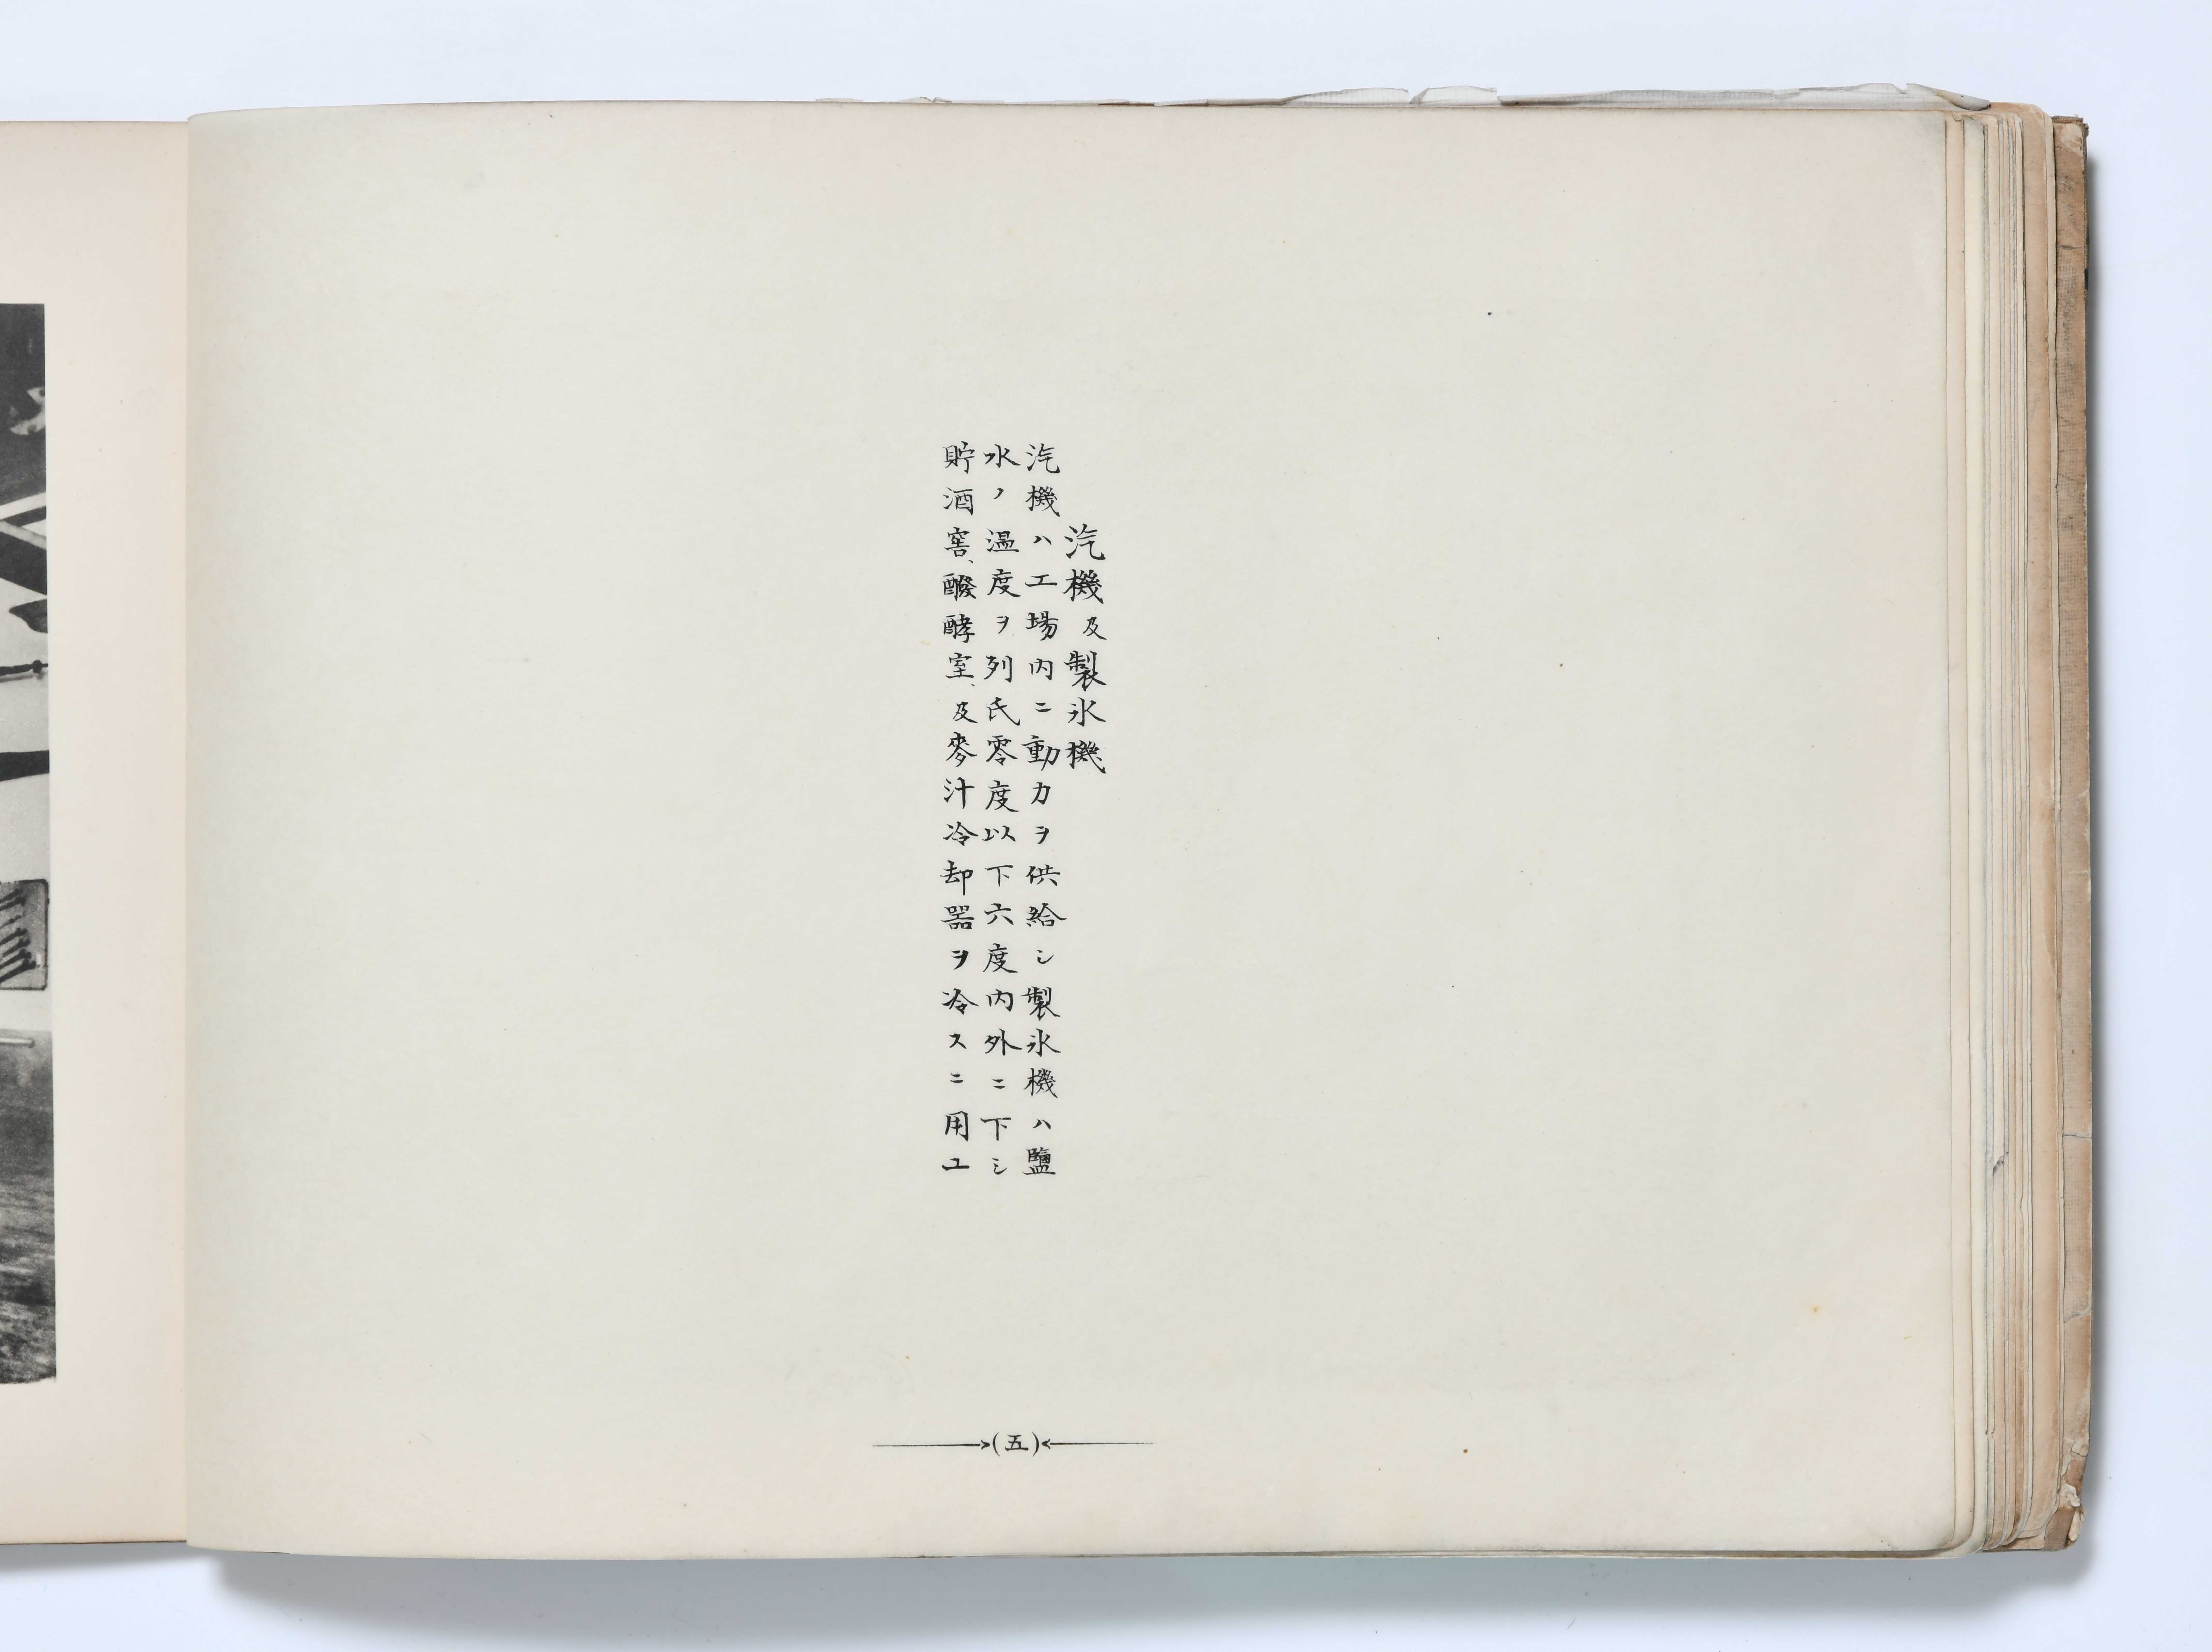 汽機及製氷機
汽機ハ工場内ニ動力ヲ供給シ製氷機ハ鹽
水ノ温度ヲ列氏零度以下六度内外ニ下シ
貯酒窖、醱酵室、及麥汁冷却器ヲ冷スニ用ユ
(五)